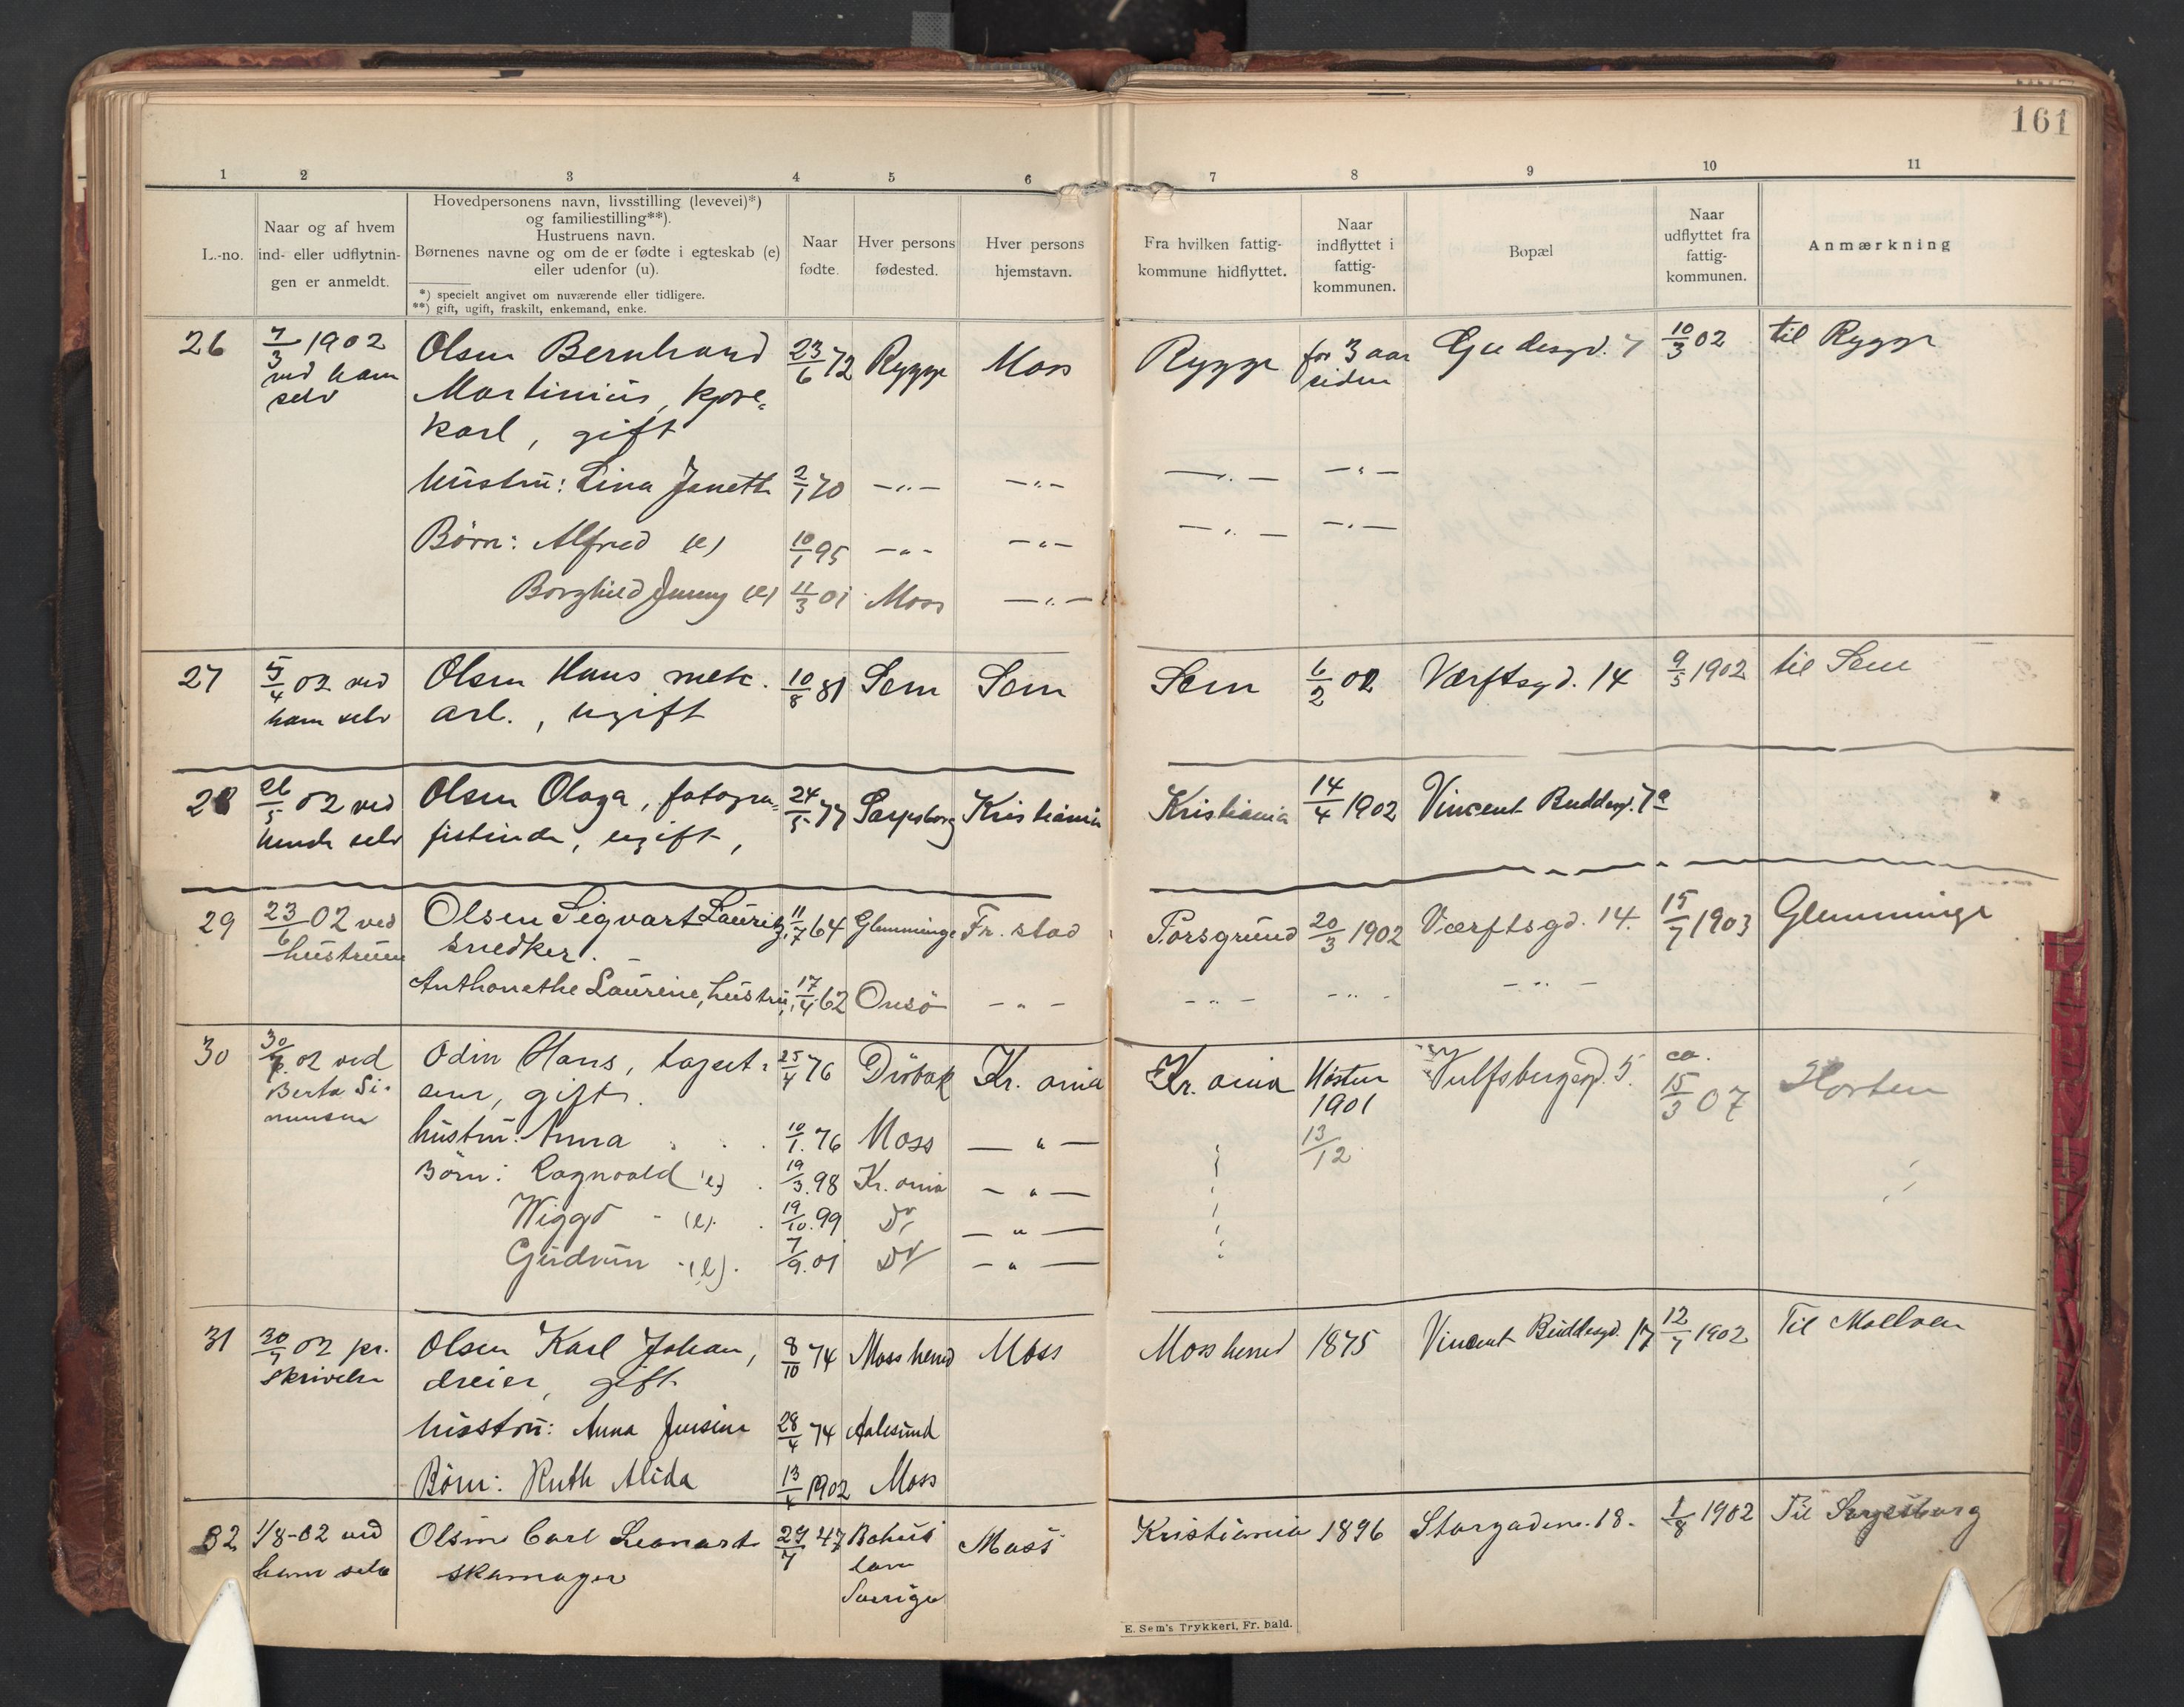 161
1 2 3 4 5 6 7 8 9 10 11
L.-no.
Naar og af hvem
ind- eller udflytnin-
gen er anmeldt.
Hovedpersonens navn, livsstilling (levevei)*)
og familiestilling**).
Hustruens navn.
Børnenes navne og om de er fødte i egteskab (e)
eller udenfor (u).
*) specielt angivet om nuværende eller tidligere.
**) gift, ugift, fraskilt, enkemand, enke.
Naar
fødte.
Hver persons
fødested.
Hver persons
hjemstavn.
Fra hvilken fattig-
kommune hidflyttet.
Naar
indflyttet i
fattig-
kommunen.
Bopæl
Naar
udflyttet fra
fattig-
kommunen.
Anmærkning
26 7/3 1902 Olsen Bernhard 23/6 72 Rygge Moss Rygge for 3 aar Gudesgd. 7 10/3 02 til Rygge
ved ham Martinius, kjøre= siden
selv karl, gift
hustru: Lina Janeth 2/1 70 —„— —„— —„— —„—
Børn: Alfred (e) 10/1 95 —„— —„— —„— —„—
Borghild Jenny (e) 11/3 01 Moss —„—
27 5/4 02 ved Olsen Hans mek. 10/8 81 Sem Sem Sem 6/2 02 Værftsgd. 14 9/5 1902 til Sem
ham selv arb., ugift
28 26/5 02 ved Olsen Olaga, fotogra= 24/5 77 Sarpsborg Kristiania Kristiania 14/4 1902 Vincent Buddesgd. 7a
hende selv fistinde, ugift,
29 23/6 02 ved Olsen Sigvart Lauritz, 11/7 64 Glemminge Fr. stad Porsgrund 20/3 1902 Værftsgd. 14. 15/7 1903 Glemminge
hustruen snedker.
Anthonethe Laurine, hustru, 17/4 62 Onsö —„— —„— —„— —„—
30 30/7 02 ved Odin Hans, tapet= 25/4 76 Dröbak Kr. ania Kr. ania Høsten Vulfsbergsgd. 5. ca. 15/3 07 Horten
Berta Si- serer, gift. 1901
monsen hustru: Anna 10/1. 76 Moss —„— 13/12
Børn: Ragnvald (e) 19/3. 98 Kr. ania —„—
Wiggo - (e). 19/10. 99 Do —„—
Gudrun - (e). 7/9. 01 Do —„—
31 30/7 02 pr. Olsen Karl Johan, 8/10 74 Moss herred Moss Moss herred 1875 Vincent Buddesgd. 17 12/7 1902 Til Mellom
skrivelse dreier, gift
husstru: Anna Jensine 28/4 74 Aalesund
Børn: Ruth Alida 13/4 1902 Moss
32 1/8-02 ved Olsen Carl Leonart 29/7 47 Bohus Moss Kristiania 1896 Storgaden. 18. 1/8 1902 Til Sarpsborg
ham selv skomager len
Sverige
E. Sem's Trykkeri, Fr. hald.